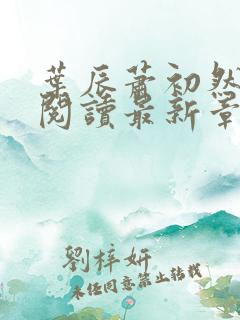 葉辰蕭初然
閱讀最新章
劉梓妍
未经同意禁止转载